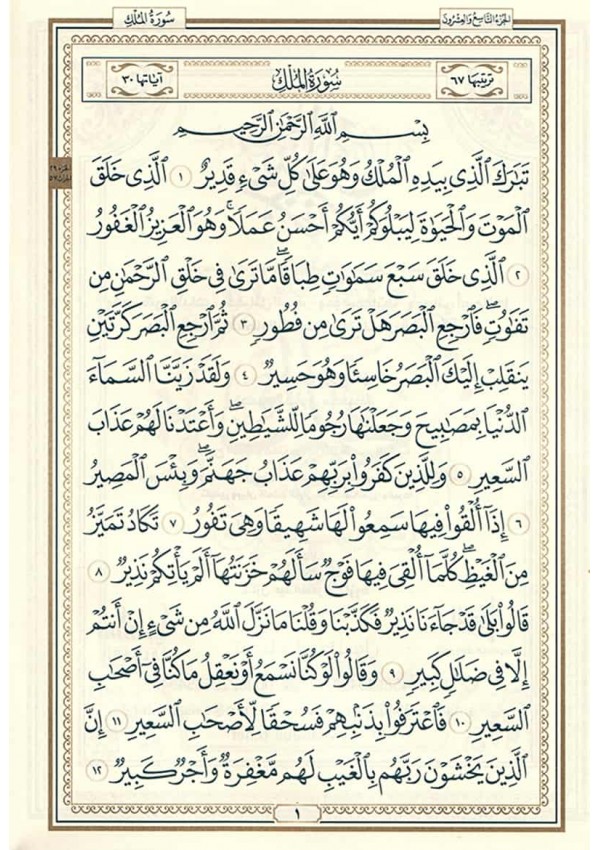 الجزء التاسع والعشرون
سورة الملك
ترتيبها ٦٧
سُورَةُ المُلْكِ
آياتها ٣٠
بِسْمِ ٱللَّهِ ٱلرَّحْمَٰنِ ٱلرَّحِيمِ
تَبَٰرَكَ ٱلَّذِى بِيَدِهِ ٱلْمُلْكُ وَهُوَ عَلَىٰ كُلِّ شَىْءٍ قَدِيرٌ ١ ٱلَّذِى خَلَقَ
ٱلْمَوْتَ وَٱلْحَيَوٰةَ لِيَبْلُوَكُمْ أَيُّكُمْ أَحْسَنُ عَمَلًا ۚ وَهُوَ ٱلْعَزِيزُ ٱلْغَفُورُ
٢ ٱلَّذِى خَلَقَ سَبْعَ سَمَٰوَٰتٍ طِبَاقًا ۖ مَّا تَرَىٰ فِى خَلْقِ ٱلرَّحْمَٰنِ مِن
تَفَٰوُتٍ ۖ فَٱرْجِعِ ٱلْبَصَرَ هَلْ تَرَىٰ مِن فُطُورٍ ٣ ثُمَّ ٱرْجِعِ ٱلْبَصَرَ كَرَّتَيْنِ
يَنقَلِبْ إِلَيْكَ ٱلْبَصَرُ خَاسِئًا وَهُوَ حَسِيرٌ ٤ وَلَقَدْ زَيَّنَّا ٱلسَّمَآءَ
ٱلدُّنْيَا بِمَصَٰبِيحَ وَجَعَلْنَٰهَا رُجُومًا لِّلشَّيَٰطِينِ ۖ وَأَعْتَدْنَا لَهُمْ عَذَابَ
ٱلسَّعِيرِ ٥ وَلِلَّذِينَ كَفَرُوا۟ بِرَبِّهِمْ عَذَابُ جَهَنَّمَ ۖ وَبِئْسَ ٱلْمَصِيرُ
٦ إِذَآ أُلْقُوا۟ فِيهَا سَمِعُوا۟ لَهَا شَهِيقًا وَهِىَ تَفُورُ ٧ تَكَادُ تَمَيَّزُ
مِنَ ٱلْغَيْظِ ۖ كُلَّمَآ أُلْقِىَ فِيهَا فَوْجٌ سَأَلَهُمْ خَزَنَتُهَآ أَلَمْ يَأْتِكُمْ نَذِيرٌ ٨
قَالُوا۟ بَلَىٰ قَدْ جَآءَنَا نَذِيرٌ فَكَذَّبْنَا وَقُلْنَا مَا نَزَّلَ ٱللَّهُ مِن شَىْءٍ إِنْ أَنتُمْ
إِلَّا فِى ضَلَٰلٍ كَبِيرٍ ٩ وَقَالُوا۟ لَوْ كُنَّا نَسْمَعُ أَوْ نَعْقِلُ مَا كُنَّا فِىٓ أَصْحَٰبِ
ٱلسَّعِيرِ ١٠ فَٱعْتَرَفُوا۟ بِذَنۢبِهِمْ فَسُحْقًا لِّأَصْحَٰبِ ٱلسَّعِيرِ ١١ إِنَّ
ٱلَّذِينَ يَخْشَوْنَ رَبَّهُم بِٱلْغَيْبِ لَهُم مَّغْفِرَةٌ وَأَجْرٌ كَبِيرٌ ١٢
١